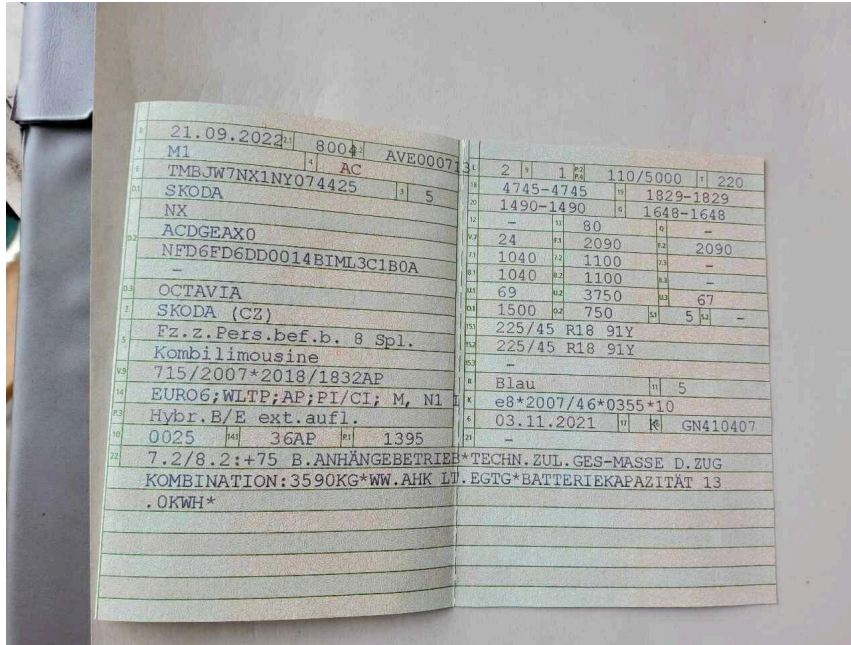 B 21.09.2022 2.1 8004 2.2 AVE000713
J M1 4 AC
E TMBJW7NX1NY074425 3 5
D.1 SKODA
NX
D.2 ACDGEAX0
NFD6FD6DD0014BIML3C1B0A
-
D.3 OCTAVIA
2 SKODA (CZ)
5 Fz.z.Pers.bef.b. 8 Spl.
Kombilimousine
V.9 715/2007*2018/1832AP
14 EURO6;WLTP;AP;PI/CI; M, N1 I
P.3 Hybr.B/E ext.aufl.
10 0025 14.1 36AP P.1 1395
L 2 9 1 P.2 P.4 110/5000 T 220
18 4745-4745 19 1829-1829
20 1490-1490 G 1648-1648
12 - 13 80 Q -
V.7 24 F.1 2090 F.2 2090
7.1 1040 7.2 1100 7.3 -
8.1 1040 8.2 1100 8.3 -
U.1 69 U.2 3750 U.3 67
O.1 1500 O.2 750 S.1 5 S.2 -
15.1 225/45 R18 91Y
15.2 225/45 R18 91Y
15.3 -
R Blau 11 5
K e8*2007/46*0355*10
6 03.11.2021 17 K 16 GN410407
21 -
22 7.2/8.2:+75 B.ANHÄNGEBETRIEB*TECHN.ZUL.GES-MASSE D.ZUG
KOMBINATION:3590KG*WW.AHK LT.EGTG*BATTERIEKAPAZITÄT 13
.0KWH*